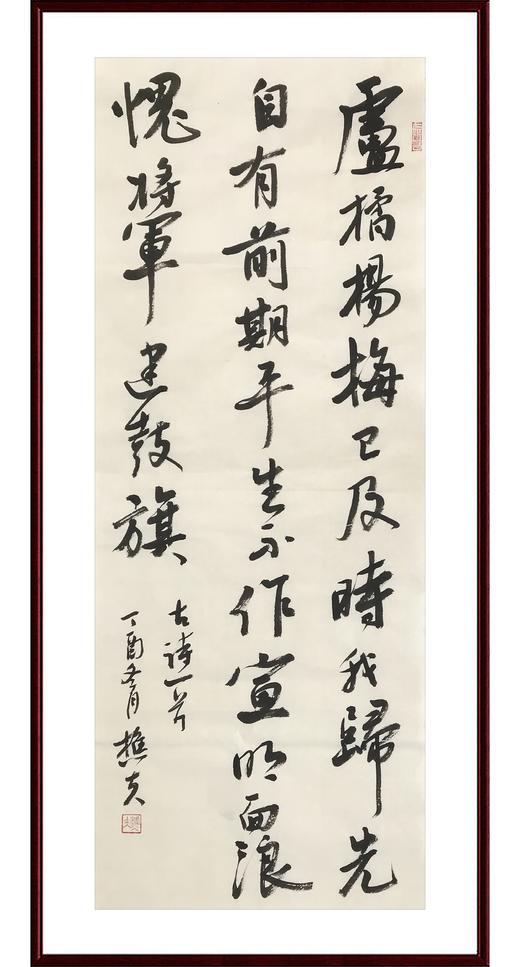 盧橘楊梅已及時我歸先
自有前期平生不作宣明面浪
愧將軍建鼓旗
古詩一首
丁酉冬月樵夫